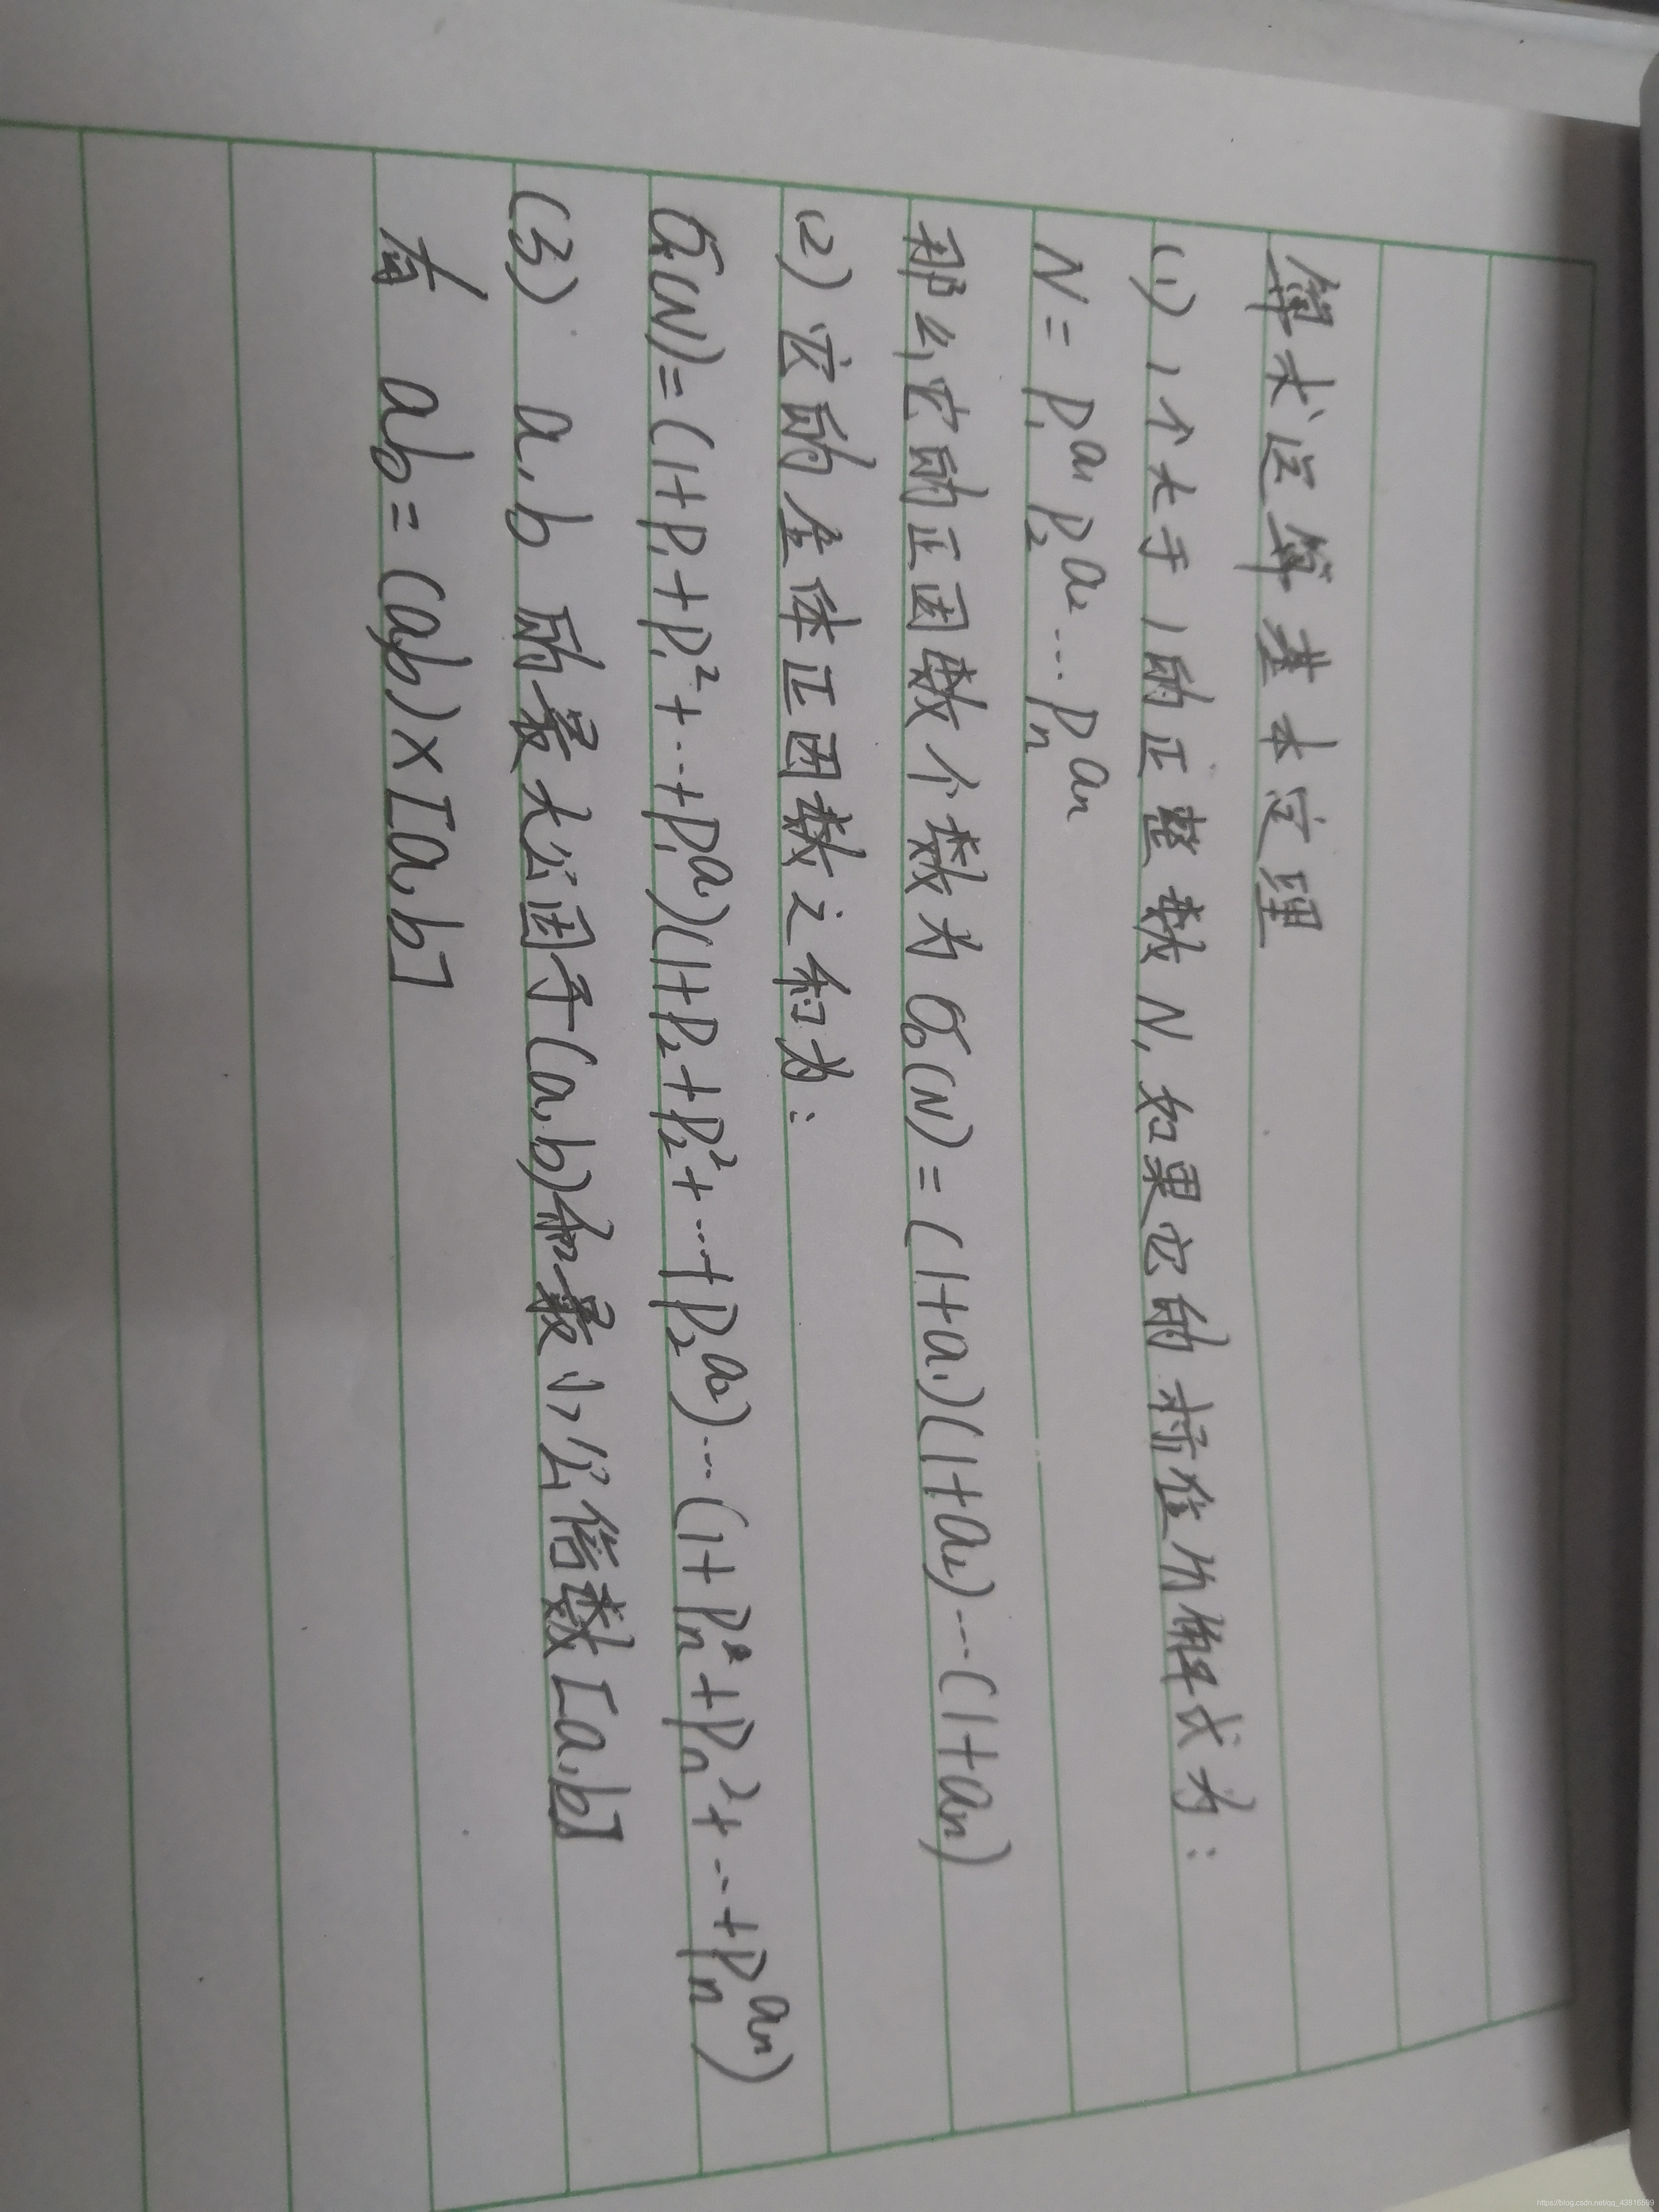 算术运算基本定理
(1) 1个大于1的正整数N,如果它的标准分解式为:
N = p₁^a₁ p₂^a₂ … pₙ^aₙ
那么它的正因数个数为 σ₀(N) = (1+a₁)(1+a₂)…(1+aₙ)
(2) 它的全体正因数之和为:
σ₁(N) = (1+p₁+p₁²+…+p₁^a₁)(1+p₂+p₂²+…+p₂^a₂)…(1+pₙ+pₙ²+…+pₙ^aₙ)
(3) a,b 的最大公因子(a,b)和最小公倍数[a,b]
有 ab = (a,b)×[a,b]
https://blog.csdn.net/qq_43816599